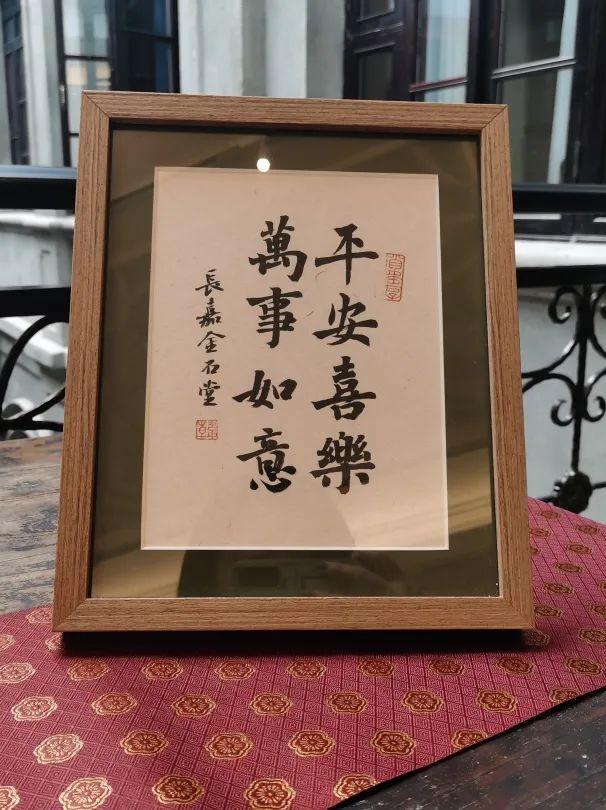 平安喜樂
萬事如意
長嘉金石堂